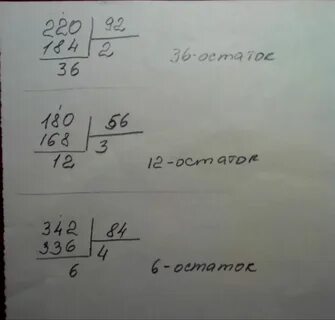 220 92
184 2
36 36-остаток
180 56
168 3
12 12-остаток
342 84
336 4
6 6-остаток